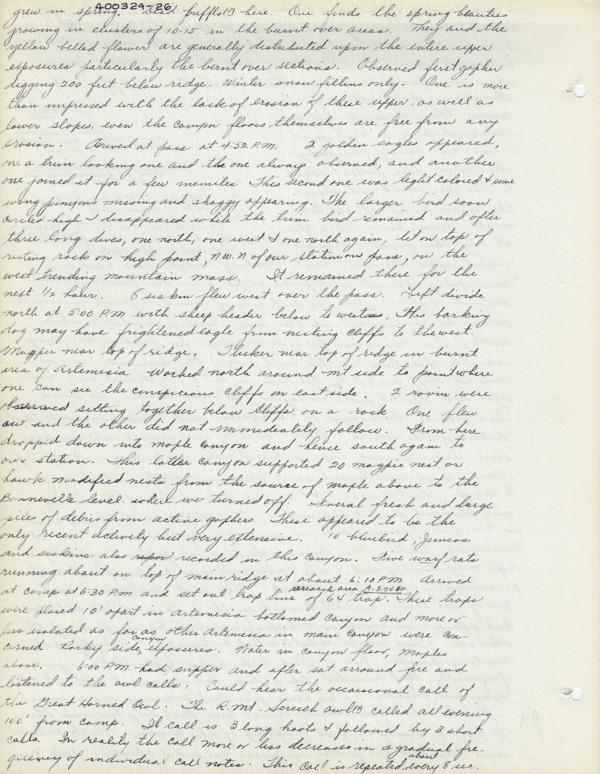 400324-26
grew in spring. Dead bufflo(?) here. One finds the spring beauties
growing in clusters of 10-15 in the burnt over areas. They and the
yellow belled flower are generally distributed upon the entire upper
exposures particularly the burnt over sections. Observed first gopher
digging 200 feet below ridge. Winter snow filling only. One is more
than impressed with the lack of erosion of these upper, as well as
lower slopes, even the canyon floors themselves are free from any
erosion. Arrived at pass at 4:52 P.M. 2 golden eagles appeared,
on a trim looking one and the one always observed, and another
one joined it for a few menites. This second one was light colored & some
wing pinyons missing and shaggy appearing. The larger bird soon
circled high & disappeared while the trim bird remained and after
three long dives, one north, one west & one north again, let on top of
resting rock on high point, N.W.N of our station on pass, on the
west trending mountain mass. It remained there for the
next 1/2 hour. 8 siskin flew west over the pass. Left divide
north at 5:00 P.M with sheep header below to west. His barking
dog may have frightened eagle from nesting cliffs to the west.
Magpie near top of ridge. Flicker near top of ridge in burnt
area of Artemesia. Worked north around mt side to point where
one can see the conspicious cliffs on east side. 2 rovin were
observed sitting together below cliffs on a rock. One flew
out and the other did not immediately follow. From here
dropped down into maple canyon and hence south again to
our station. This latter canyon supported 20 magpie nest or
hawk modified nests from the source of maple above to the
Bonneville level where we turned off. Several fresh and large
piles of debris from active gophers. These appeared to be the
only recent activity but very extensive. 10 bluebird, Juncos
and siskins also recorded in this canyon. Five rats
running about on top of main ridge at about 6:10 P.M. Arrived
at camp at 6:30 P.M and set out trap line of 64 trap. These traps
research area
were placed 10' apart in Artemesia bottomed canyon and more or
less isolated as far as other Artemesia in main canyon were con-
cerned. Rocky side canyon exposures. Water in canyon floor, maples
above. 6:00 P.M. had supper and after sat arround fire and
listened to the owl calls. Could hear the occasional call of
the Great Horned Owl. The R.Mt. Screech Owl(?) called all evening
100' from camp. It call is 3 long hoots & followed by 3 short
calls. In reality the call more or less decreases in a gradual fre-
quency of individual call notes. This call is repeated about every 8 sec.